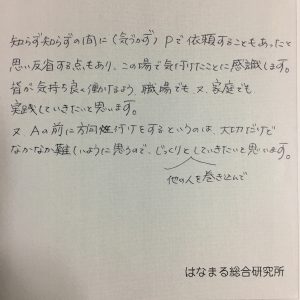 知らず知らずの間に(気づかず)Pで依頼することもあったと
思い反省する点もあり、この場で気付けたことに感謝します。
皆が気持ち良く働けるよう、職場でも又、家庭でも
実践していきたいと思います。
又Aの前に方向性付けをするというのは、大切だけど
なかなか難しいように思うので、じっくりとしていきたいと思います。
他の人を巻き込んで
はなまる総合研究所